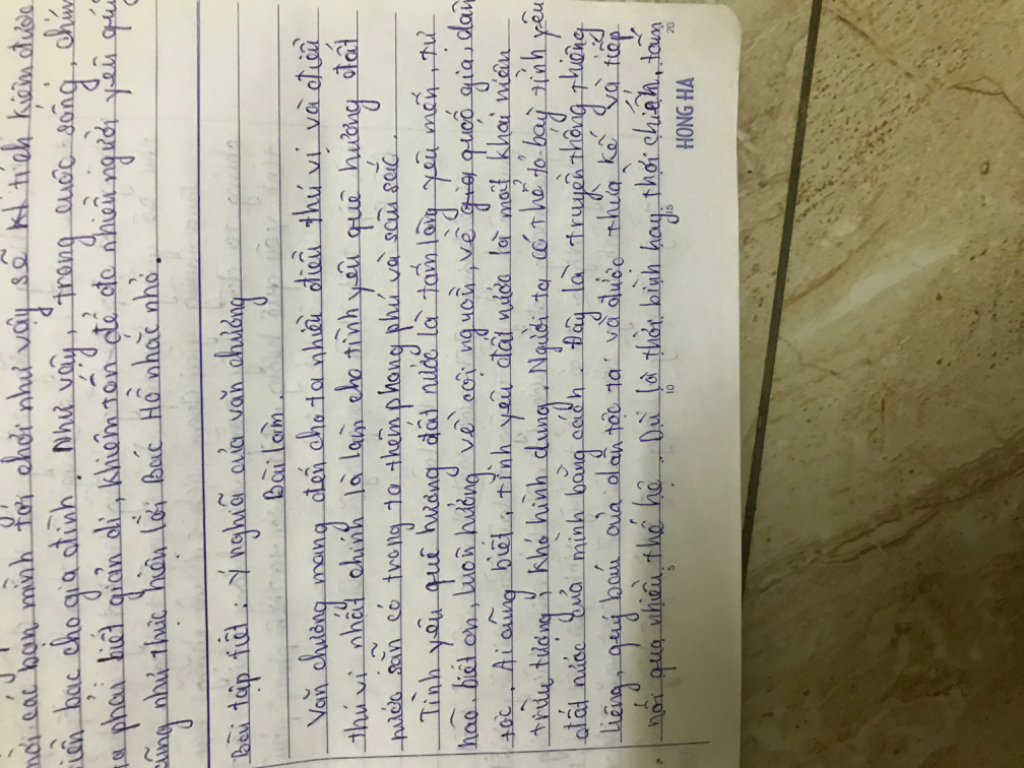 với các bạn mình tới chơi như vậy sẽ kí tích kiệm được
tiền bạc cho gia đình. Như vậy, trong cuộc sống, chún
ta phải biết giản dị, khiêm tốn để đc nhiều người yêu quí
cũng như thực hiện lời Bác Hồ nhắc nhở.
Bài tập tiết: Ý nghĩa của văn chương
Bài làm.
Văn chương mang đến cho ta nhiều điều thú vị và điều
thú vị nhất chính là làm cho tình yêu quê hương đất
nước sẵn có trong ta thêm phong phú và sâu sắc.
Tình yêu quê hương đất nước là tấm lòng yêu mến, tự
hào, biết ơn, luôn hướng về cội nguồn, về gia quốc gia, dân
tộc. Ai cũng biết, tình yêu đất nước là một khái niệm
trừu tượng, khó hình dung. Người ta có thể tỏ bày tình yêu
đất nước của mình bằng cách. Đây là truyền thống thiêng
liêng, quý báu của dân tộc ta và được thừa kế và tiếp
nối qua nhiều thế hệ. Dù là thời bình hay thời chiến, tấm
5 10 15 20
HONG HA